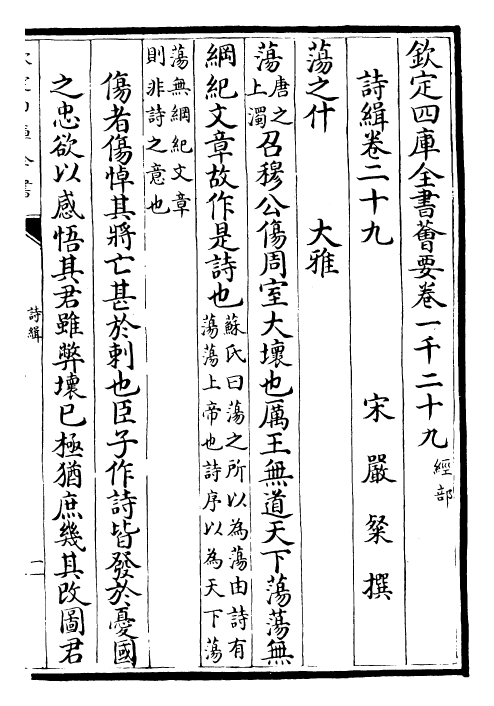 欽定四庫全書薈要卷一千二十九經部
詩緝卷二十九　宋　嚴粲　撰
蕩之什　大雅
蕩唐之上濁召穆公傷周室大壞也厲王無道天下蕩蕩無
綱紀文章故作是詩也蘇氏曰蕩之所以為蕩由詩有蕩蕩上帝也詩序以為天下蕩
蕩無綱紀文章則非詩之意也
傷者傷悼其將亡甚於刺也臣子作詩皆發於憂國
之忠欲以感悟其君雖弊壞已極猶庶幾其改圖君
詩緝